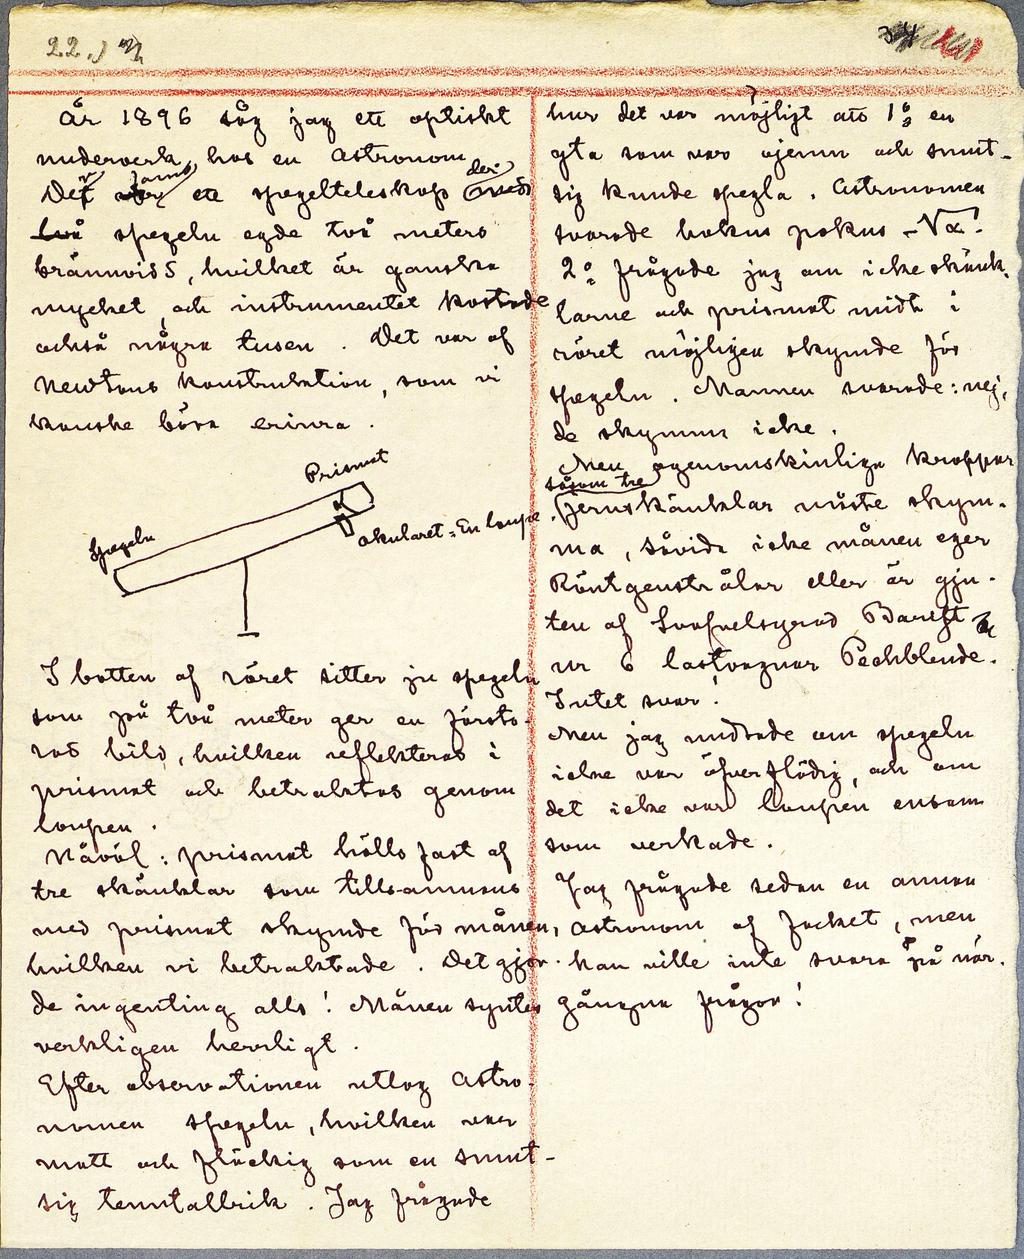 22.)
År 1896 såg jag ett optiskt
underverk, hos en Astronom.
Det fanns ett spegelteleskop der
spegeln egde två meters
brännvidd, hvilket är ganska
mycket, och instrumentet kostade
också några tusen. Det var af
Newtons konstruktion, som vi
kanske böra erinra.
Prismat
Spegeln
Okularet = En loupe
I botten af röret sitter ju spegeln
som på två meter ger en försto-
rad bild, hvilken reflekteras i
prismat och betraktas genom
loupen.
Nåväl: prismat hölls fast af
tre skänklar som tillsammans
med prismat skymde för månen,
hvilken vi betraktade. Det gjor-
de ingenting alls! Månen syntes
verkligen herrligt.
Efter observationen uttog Astro-
nomen spegeln, hvilken var
matt och fläckig som en smut-
sig tenntallrik. Jag frågade
hur det var möjligt att 1º en
yta som var ojemn och smut-
sig kunde spegla. Astronomen
svarade hokus pokus -√α-.
2º frågade jag om icke skänk-
larne och prismat midt i
röret möjligen skymde för
spegeln. Mannen svarade: nej,
de skymma icke.
Men ogenomskinliga kroppar
såsom tre
jernskänklar måste skym-
ma, såvida icke månen eger
Röntgenstrålar eller är gju-
ten af Svafvelsyrad Baryt
ur 6 lastvagnar Pechblende.
Intet svar!
Men jag undrade om spegeln
icke var öfverflödig, och om
det icke var loupen ensam
som verkade.
Jag frågade sedan en annan
Astronom af facket, men
han ville inte svara på när-
gångna frågor!